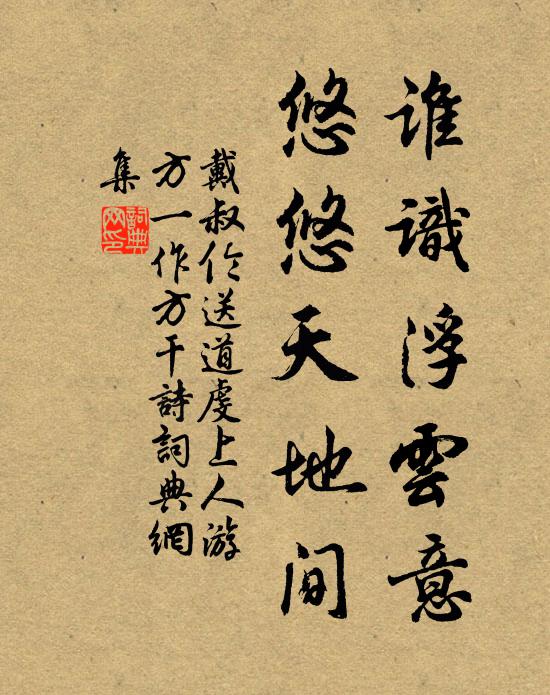 谁識浮雲意
悠悠天地间
戴叔伦送道虔上人游
方一作方干詩詞典網
集
詞典網印